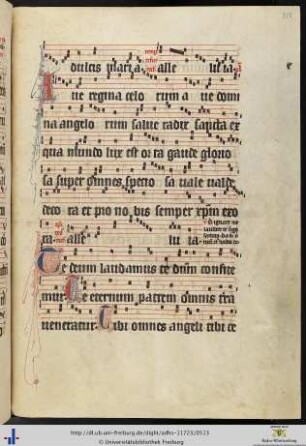 dulcis maria alle luia
Aue regina celo rum a ue domi
na angelo rum salue radix sancta ex
qua mundo lux est or ta gaude glorio
sa super omnes speci o sa uale ualde
deco ra et pro no bis semper xpm exo
ra alle lu ia
Te deum laudamus te dnm confite
mur Te eternum patrem omnis tra
ueneratur Tibi omnes angeli tibi ce
http://dl.ub.uni-freiburg.de/diglit/adhs-21723/0523
© Universitätsbibliothek Freiburg